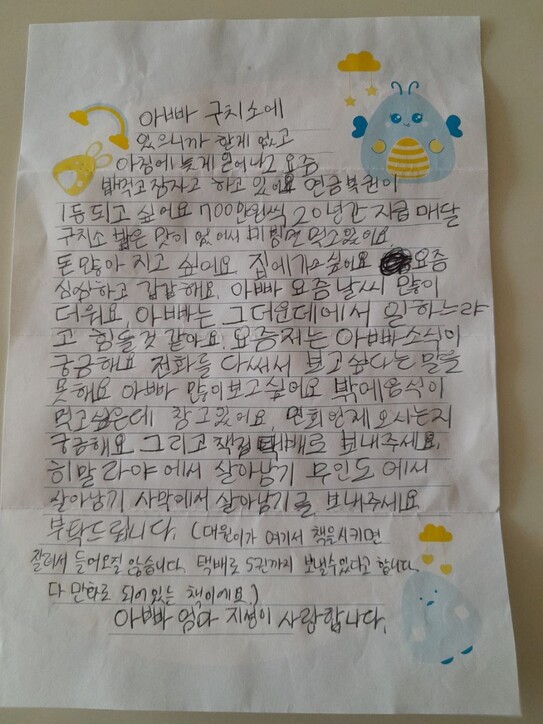 아빠 구치소에
있으니까 할게 없고
아침에 늦게 일어나고 요즘
밥먹고 잠자고 하고 있어요 연금복권이
1등 되고 싶어요 700만원씩 20년간 지급 매달
구치소 밥은 맛이 없어서 비빔면 먹고있어요
돈 많아 지고 싶어요. 집에가고 싶어요 요즘
심심하고 갑갑해요. 아빠 요즘 날씨 많이
더워요. 아빠는 그더운데에서 일 하느랴
고 힘들것 같아요. 요즘저는 아빠소식이
궁금해요 전화를 다써서 보고싶다는 말을
못해요 아빠 많이보고싶어요 밖에음식이
먹고싶은데 참고있어요. 면회언제오시는지
궁금해요 그리고 책점 택배로 보내주세요.
히말라야에서 살아남기 무인도에서
살아남기 사막에서 살아남기를 보내주세요
부탁드립니다. (대원이가 여기서 책을시키면
잘려서 들어오질 않습니다. 택배로 5권까지 보낼수있다고 합니다.
다 만화로 되어있는 책이에요.)
아빠 엄마 지성이 사랑합니다.